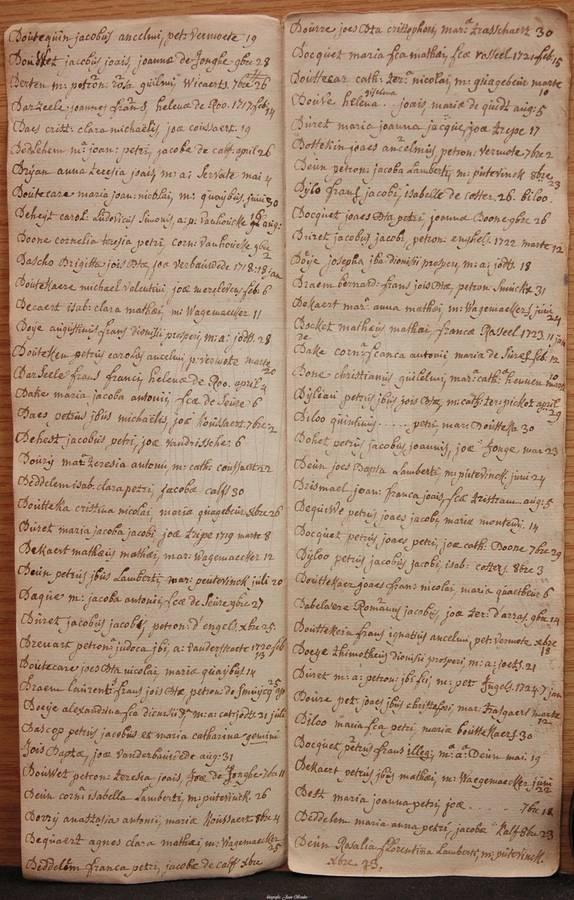 Boutequin jacobus ancelmi, pet: vermote 19
Douwet jacobus joais, joanna de Jonghe gbre 28
Berten m: petron: rosa guilmi Wicaerts 7bre 26
Barzeele joannes frans, helena de Roo. 1717 feb: 14
Baes crist: clara michaelis, joa coussaert. 19
Beddelhem m: joan: petri, jacoba de calf: april 26
Brijan anna teresia joais m: a: Servate mai 4
Boutecare maria joan: nicolai, m: quaybus, juni 30
Behejt carol: Ludovicus Simonis, a: p: vanhoucke 16 aug:
Boone cornelia teresia petri, corn: vanhoucke 9bre 2
Bascho Brigitte jois Bta, joa verbauwede 1718: 18 jan
Boutekaere michael valentini joa merelevey feb: 6
Decaert isab: clara mathai, m: Wagemaecker 11
Boije augustinus frans dionisii prosperi, m: a: jodts. 28
Bouteken petrus carolus ancelmi, p: vermote marte 20
Barseele frans franci, helena de Roo. april 9
Bake maria jacoba antonii, fca de Seure 6
Baes petrus jbus michaelis, joa Coussaert. 7bre 2
Behest jacobus petri, joa vandrissche: 6
Boury mar: teresia antonii m: cath: coussaert 12
Beddelem isab: clara petri, jacoba calf 30
Boutteka cristina nicolai, maria quagebeur xbre 26
Buret maria jacoba jacobi, joa trepe 1719 marte 8
Bekaert mathaus mathai, mar: Wagemaecker 12
Beun petrus jbus Lamberti, mar: peuterinck juli 20
Baque m: jacoba antonii, fca de Seure 9bre 27
Buret jacobus jacobi, petron: d'engels. xbre 25.
Brevart petron: judoca jbi, a: vandersteete 1720 feb 13
Boutecare joes Bta nicolai maria quaybus 14
Braem laurenti frans jois Bta, petron: de Smuijcq 25 ap
Boeije alexandrina fca dionisii m: a: cat: jodts. 21 juli
Bascop petrus jacobus et maria catharina gemini
Jois Bapta, joa vanderbauwede aug: 31
Bouwet petron: teresia joais, Joa de Jonghe 7bre 11
Beun corn: isabella Lamberti, m: puterinck 26
Borry anastasia antonii, maria Koussaert 8bre 4
Bequaert agnes clara mathai, m: Wagemaecker 25
Beddelem franca petri, jacoba de calf xbre
Bourre joes Bta cristophori, mar: trasschaert 30
Bocquet maria fca mathai, fca vosseel 1721 feb 15
Bouttecar cath: ter: nicolai, m: quagebeur marte 10
Bouve helena . . joais, maria de quidt aug: 5
Buret maria joanna jacque, joa trepe 17
Bottekin joaes ancelmus, petron: vermote 7bre 2
Beun petron: jacoba Lamberti, m: puterinck 8bre 23
Bylo frans jacobi, isabelle de cotter. 26. biloo.
Bocquet joaes Bta petri, joanna Boone 9bre 26
Buret jacobus jacobi, petron: enghels. 1722 marte 12
Boije josepha jba dionisii prosperi, m: a: jodts. 18
Braem bernard: frans jois Bta, petron Smuicke 31
Bekaert mar: anna mathai, m: Wagemaecker, juni 24
Bocket mathaus mathai francae Rasseel 1723. 11 jan
Bake corn: franca antonii maria de Surel feb. 12
Bone christianus guilelmi, mar: cath: keunen mart 10
Bijleau petrus jbus jois Bta, m: cath: ter: pickor april 29
Biloo quintinus . . . . . petri, mar: Boutteka 30
Bohet petrus jacobus joannis, joa Jonge mar 23
Beun joes Bapta Lamberti, m: puterinck. juni 24
Brismael joan: franca joais, fca tristram aug: 5
Bequwe petrus joaes jacobi maria monteny. 14
Bocquet petrus joaes petri, joa cath: Boone 7bre 29
Bijloo petrus jacobus jacobi, isab: cotters. 8bre 3
Bouttekaer joaes frans: nicolai, maria quaetbeur 6
Babelaere Romanus jacobus, joa ter: d'arras, 9bre 14
Bouttekeia frans ignatius ancelmi, pet: vermote xbre 18
Boeije thimotheus dionisii prosperi, m: a: joets. 21
Buret m: a: petron: jbi fii, m: pet: Ingels. 1724. 7 jan
Boure pet: joaes jbus christofori, mar: trasgaert marte 12
Biloo maria fca petri, maria bouttekaers 30
Bocquet petrus frans illeg: m: a: Beun mai 19
Bekaert petrus jbus mathai, m: Waegemaecker juni 22
Bott maria joanna petri, joa . . . - - 7bre 18
Beddelem maria anna petri, jacoba Kalf 8bre 23
Beun Rosalia florentina Lamberti, m: puterinck
xbre 13.